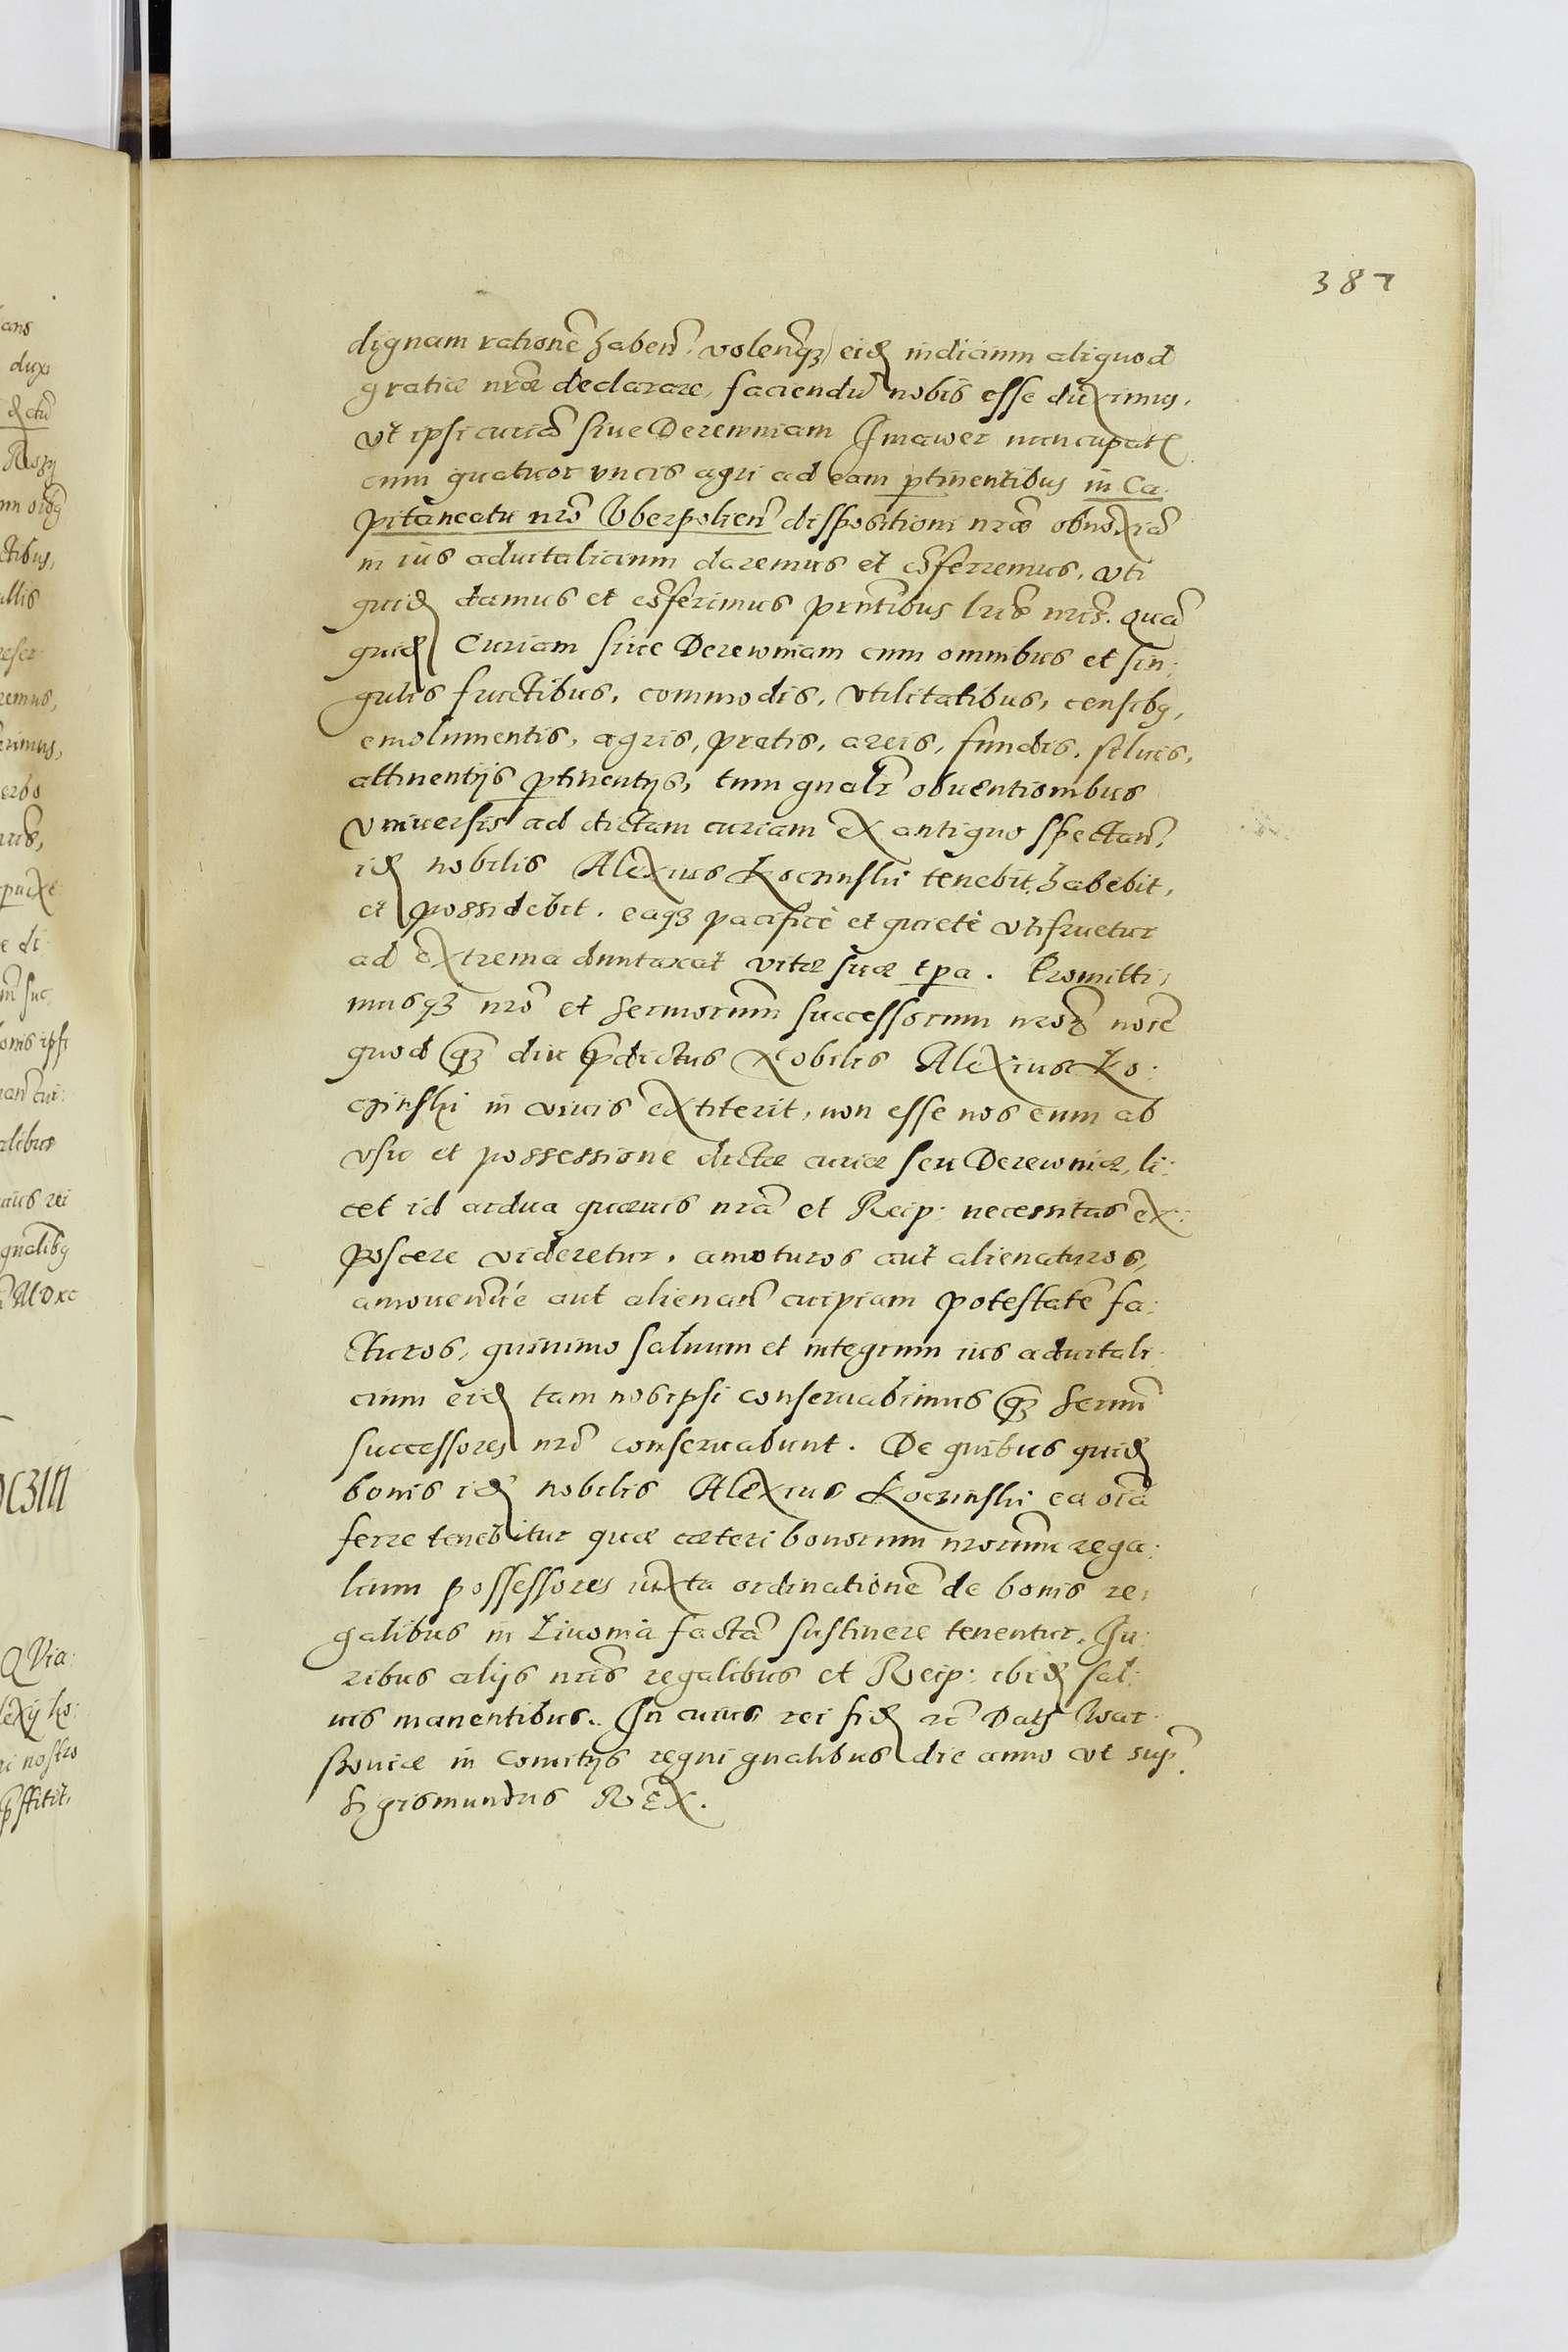 387
dignam rationē haben̄. volenq₃ eid indicium aliquod
gratiæ nr̄æ declarare, faciendū nobis esse duximus,
vt ipsi curiā siue Derewniam Imawer nuncupat
cum quatuor vncis agri ad eam ptinentibus in Ca:
pitaneatu nr̄o Vberpolien̄ dispositioni nr̄æ obnoxiā
in ius aduitalicium daremus et cōferremus, vti
quid damus et cōferimus pn̄tibus lr̄is nr̄is. Quā
quid Curiam siue Derewniam cum omnibus et sin:
gulis fructibus, commodis, vtilitatibus, censibq,
emolumentis, agris, pratis, areis, fundis, siluis,
attinentijs ptinentijs, tum gnalr̄ obuentionibus
vniuersis ad dictam curiam ex antiquo spectan̄,
id nobilis Alexius Koczinski tenebit, habebit,
et possidebit. eaq₃ pacificè et quietè vtifruetur
ad extrema duntaxat vitæ suæ tpa. Promitti:
musq₃ nr̄o et sermorum̄ successorum nr̄oȝ noīe
quod q₃ diu pdictus Nobilis Alexius Ko:
czinski in viuis extiterit, non esse nos eum ab
vsu et possessione dictæ curiæ seu Derewniæ, li:
cet id ardua quæuis nrā et Reip: necessitas ex:
poscere videretur. amoturos aut alienaturos,
amouen̄ue aut alienan̄ cuipiam potestatē fa:
cturos, quinimo saluum et integrum ius aduitali:
cium eid tam nosipsi conseruabimus q₃ sermī
successores nrī conseruabunt. De quibus quid
bonis id nobilis Alexius Koczinski ea oīā
ferre tenebitur quæ cæteri bonorum nr̄orum rega:
lium possessores iuxta ordinationē de bonis re:
galibus in Liuonia factā sustinere tenentur. Iu:
ribus alijs nrīs regalibus et Reip: ibid sal:
uis manentibus. In cuius rei fid rc̄ Dat War:
souiæ in Comitijs regni gnalibus die anno vt sup̄.
Sigismundus Rex.